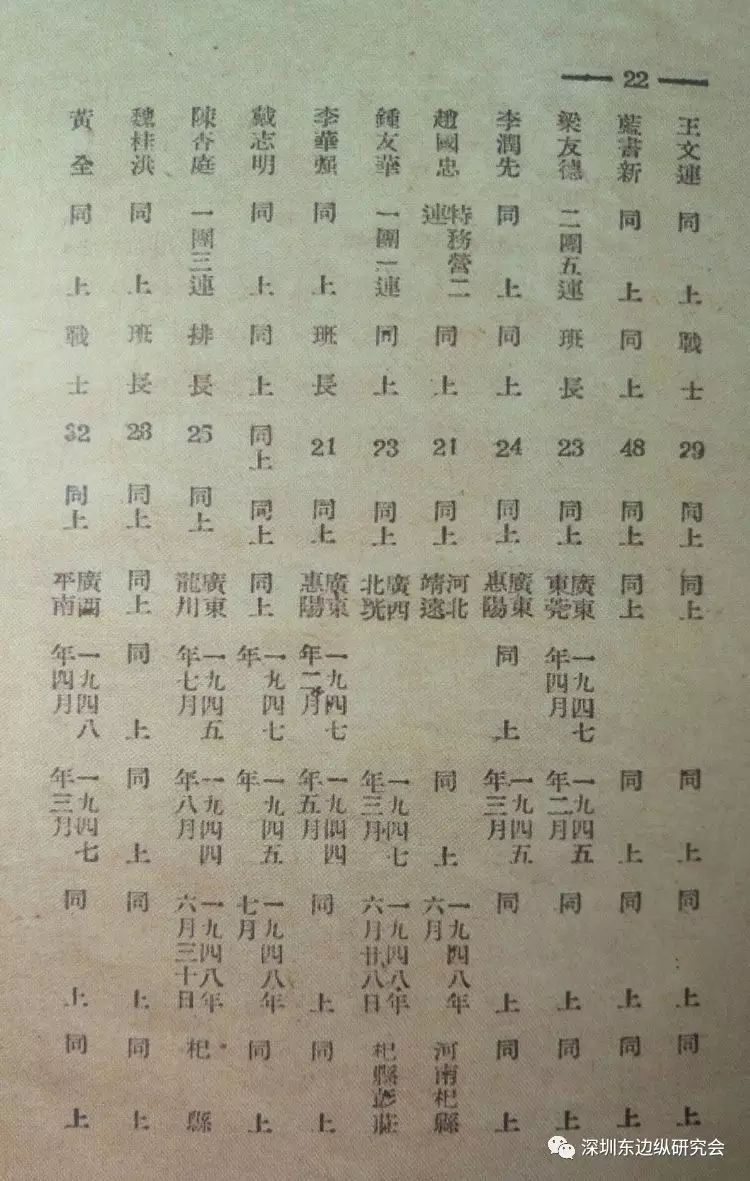 22
王文連 同上 戰士 29 同上 同上 同上 同上 同上
藍書新 同上 同上 48 同上 同上 同上 同上 同上
梁友德 二團五連 班長 23 同上 廣東東莞 一九四七年四月 一九四五年二月 同上 同上
李潤先 同上 同上 24 同上 廣東惠陽 同上 一九四五年三月 同上 同上
趙國忠 特務營二連 同上 21 同上 河北靖遠 同上 一九四八年六月 河南杞縣
鍾友華 一團一連 同上 23 同上 廣西北 一九四七年三月 一九四八年六月廿八日 杞縣彭莊
李華 同上 班長 21 同上 廣東惠陽 一九四七年二月 一九四四年五月 同上 同上
戴志明 同上 同上 同上 同上 同上 一九四七年 一九四五年 一九四八年七月 同上
陳杏庭 一團三連 排長 25 同上 廣東龍川 一九四五年七月 一九四四年八月 一九四八年六月三十日 杞縣
魏桂洪 同上 班長 28 同上 同上 同上 同上 同上 同上
黃全 同上 戰士 32 同上 廣西平南 一九四八年四月 一九四七年三月 同上 同上
深圳东边纵研究会